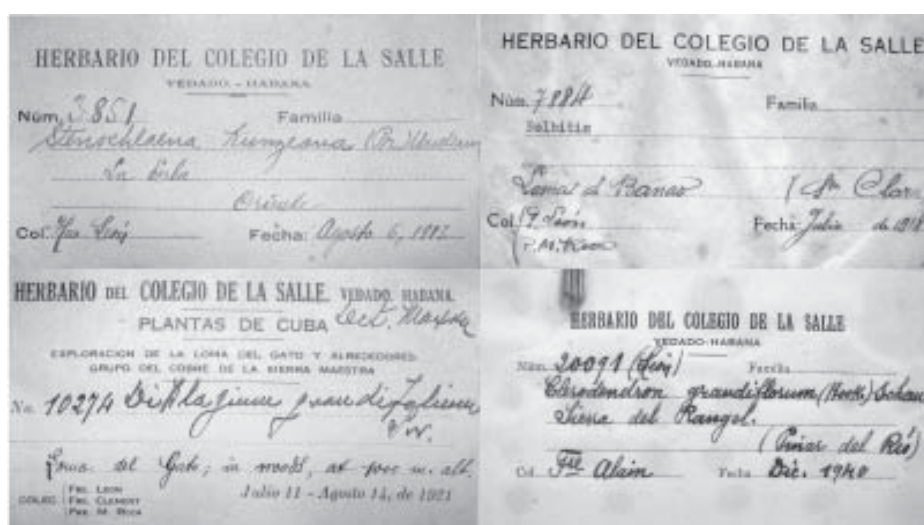 HERBARIO DEL COLEGIO DE LA SALLE
VEDADO - HABANA
Núm. 3851 Familia
Stenochlaena Kunzeana
La
Oriente
Col. Fecha: Agosto 6, 1912
HERBARIO DEL COLEGIO DE LA SALLE
VEDADO-HABANA
Núm. 7984 Familia
Bolbitis
Lomas d Banao (Sta Clara
Col. F. León Fecha: Julio de 19
P. M. Roca
HERBARIO DEL COLEGIO DE LA SALLE. VEDADO, HABANA.
PLANTAS DE CUBA
EXPLORACION DE LA LOMA DEL GATO Y ALREDEDORES
GRUPO DEL COBRE DE LA SIERRA MAESTRA
No. 10274 Diplazium grandifolium
Sw.
Loma del Gato; in woods, at 1000 m. alt.
COLEC. FRE. LEON Julio 11 - Agosto 14, de 1921
FRE. CLEMENT
PRE. M. ROCA
HERBARIO DEL COLEGIO DE LA SALLE
VEDADO-HABANA
Núm. 20091 (León) Familia
Clerodendron grandiflorum (Hook) Schau
Sierra del Rangel.
(Pinar del Río)
Col. Fre Alain Fecha Dic. 1940